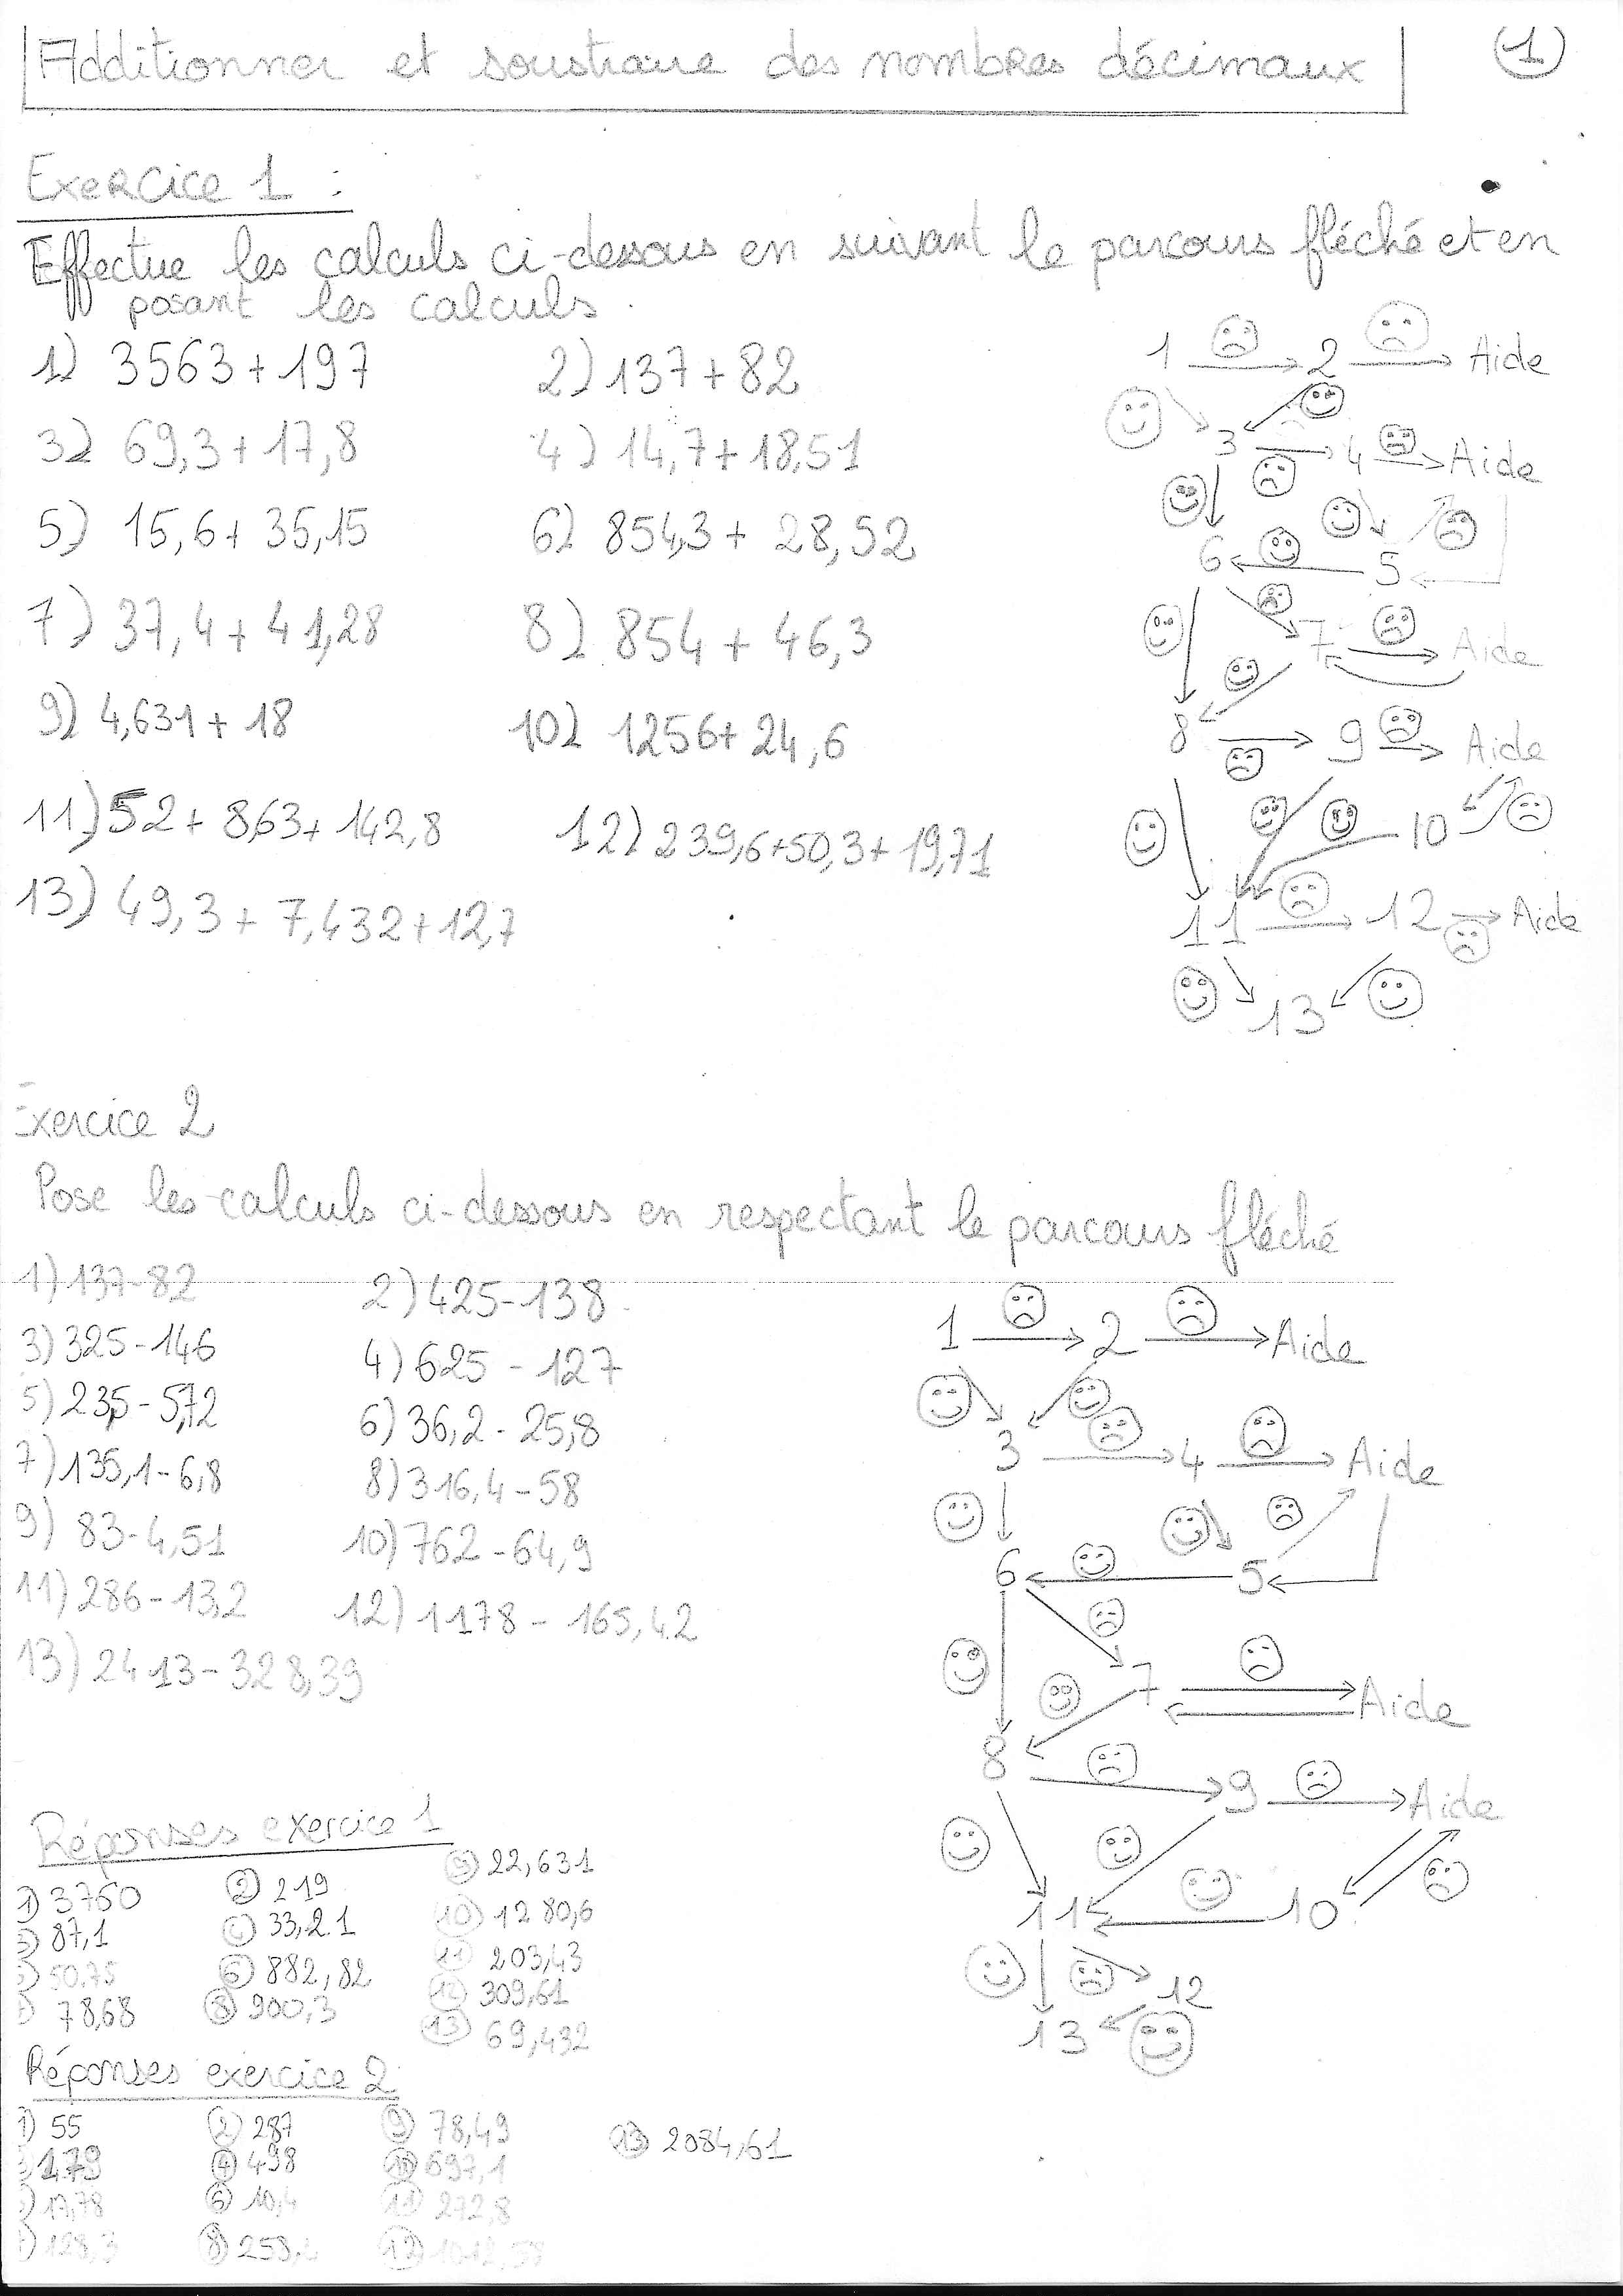 Additionner et soustraire des nombres décimaux
1
Exercice 1 :
Effectue les calculs ci-dessous en suivant le parcours fléché et en
posant les calculs.
1) 3563 + 197
2) 137 + 82
3) 69,3 + 17,8
4) 14,7 + 18,51
5) 15,6 + 35,15
6) 854,3 + 28,52
7) 37,4 + 41,28
8) 854 + 46,3
9) 4,631 + 18
10) 1256 + 24,6
11) 52 + 8,63 + 142,8
12) 239,6 + 50,3 + 19,71
13) 49,3 + 7,432 + 12,7
1 2 Aide
3 4 Aide
6 5
7 Aide
8 9 Aide
10
11 12 Aide
13
Exercice 2
Pose les calculs ci-dessous en respectant le parcours fléché
1) 137-82
2) 425-138
3) 325-146
4) 625 - 127
5) 23,5 - 5,72
6) 36,2 - 25,8
7) 135,1 - 6,8
8) 316,4 - 58
9) 83 - 4,51
10) 762 - 64,9
11) 286 - 13,2
12) 1178 - 165,42
13) 2413 - 328,39
1 2 Aide
3 4 Aide
6 5
7 Aide
8 9 Aide
11 10
12
13
Réponses exercice 1
1) 3760
2 219
87,1
4 33,21
50,75
6 882,82
78,68
8 900,3
9 22,631
10 1280,6
11 203,43
12 309,61
13 69,432
Réponses exercice 2
1) 55
2 287
179
4 498
17,78
6 10,4
128,3
8 258,
9 78,49
10 697,1
11 272,8
12 1012,58
13 2084,61